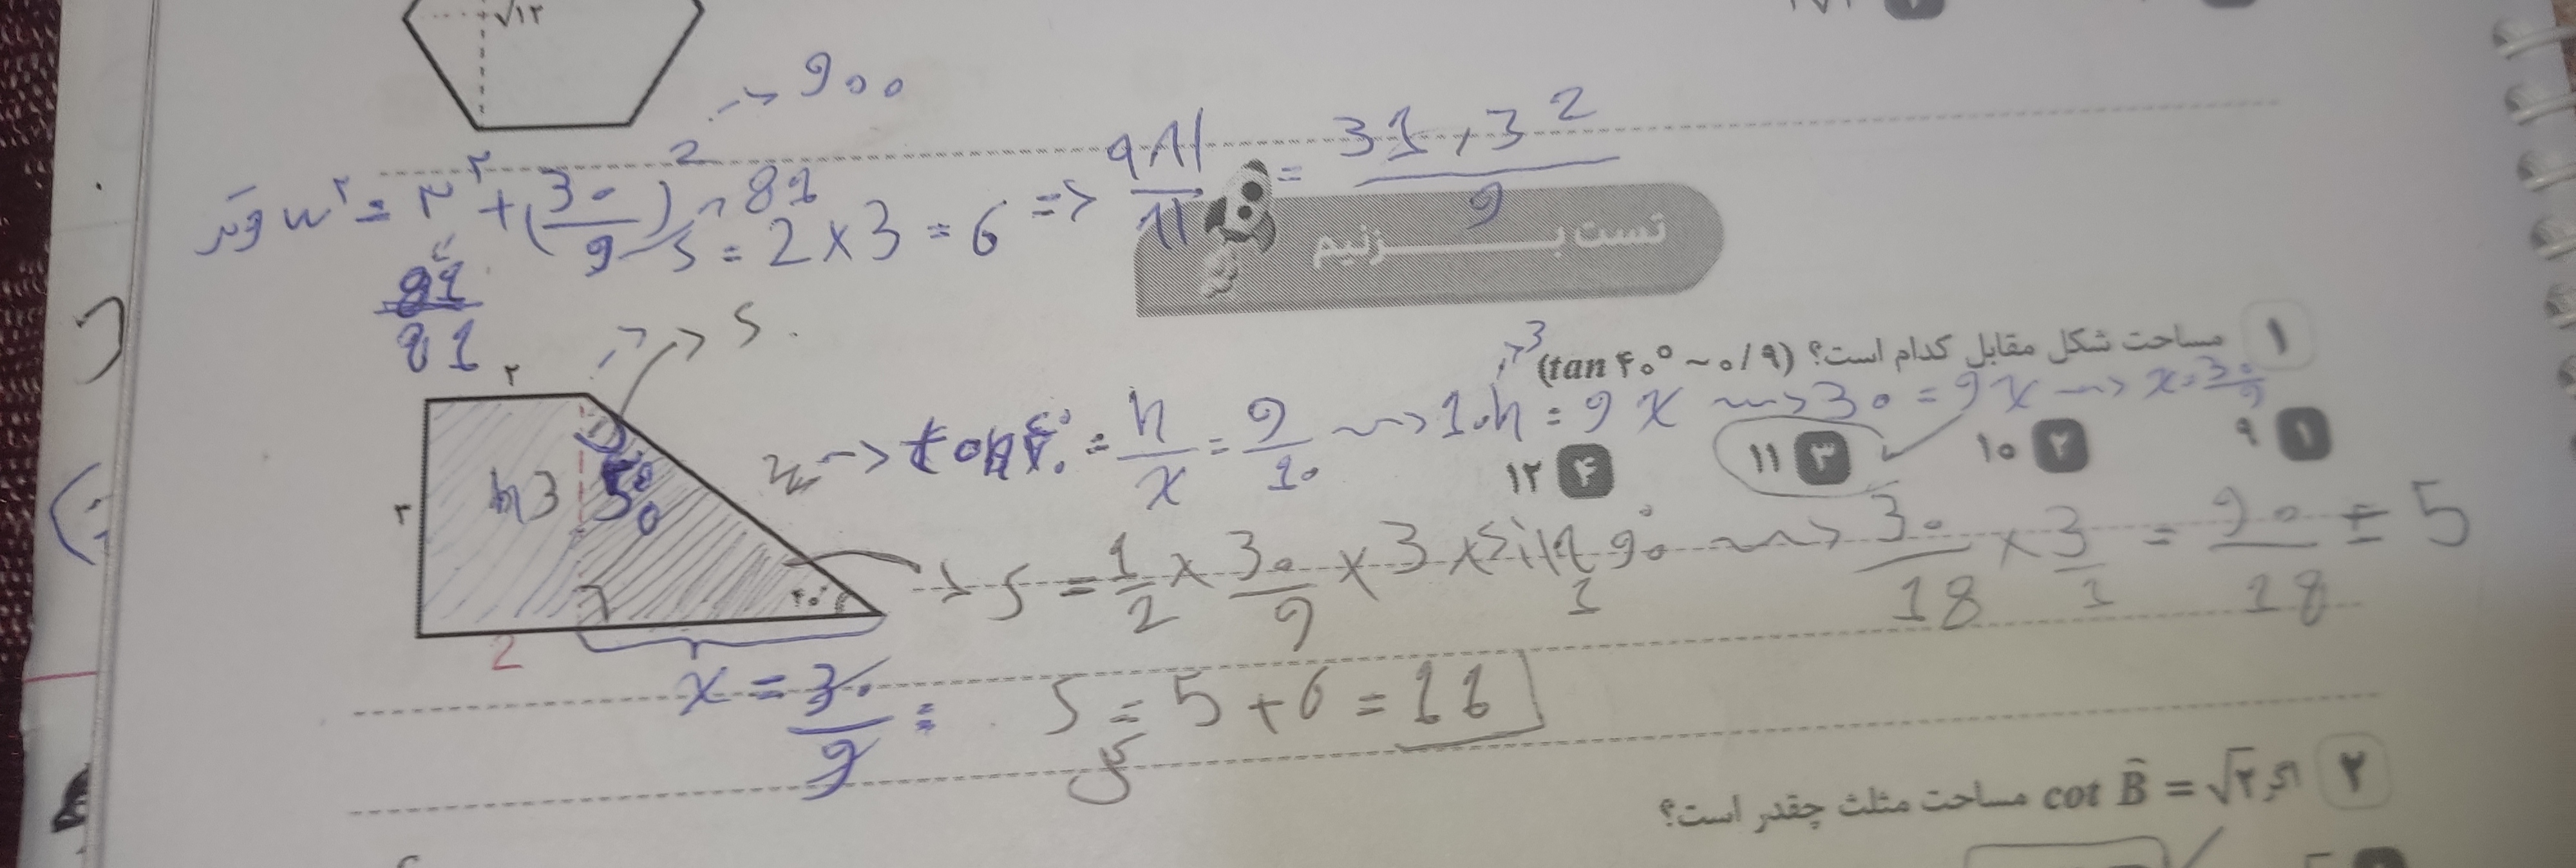 √۱۲
→ 900
وتر² = ۳² + (30/9)² → 81
S = 2 × 3 = 6 => ۹۸۱/۸۱ = 31,3²/9
81
تست بــزنیم
۱ مساحت شکل مقابل کدام است؟ (tan ۴۰° ~ ۰/۹)
→ tan ۴۰° = h/x = 9/10 → 10h = 9x → 30 = 9x → x = 30/9
۱ ۹
۲ ۱۰
۳ ۱۱
۴ ۱۲
۲
۳
h 3
50
۴۰°
2
S = 1/2 × 30/9 × 3 × sin 90° → 30/18 × 3/1 = 90/18 = 5
1
x = 30/9 =
S = 5 + 6 = 11
کل
۲ اگر cot B̂ = √۲ مساحت مثلث چقدر است؟